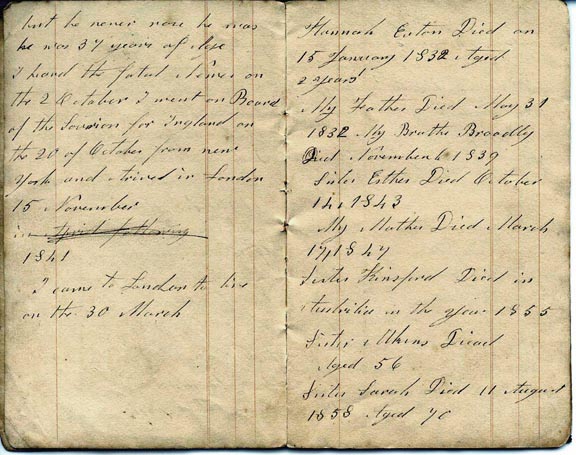 but he never rose he was
he was 37 years of Age
I heard the fatal News on
the 2 October I went on Board
of the for England on
the 20 of October from new
York and arived in London
15 November
in April following
1841
I came to London to live
on the 30 March
Hannah Eaton Died on
15 January 1832 Aged
2 years
My Father Died May 31
1832 My Brothe Broadly
Died November 6 1839
Sister Esther Died October
14, 1843
My Mother Died March
17, 1847
Sister Kinsford Died in
Australia in the year 1855
Sister Atkens Diead
Aged 56
Sister Sarah Died 11 August
1858 Aged 70